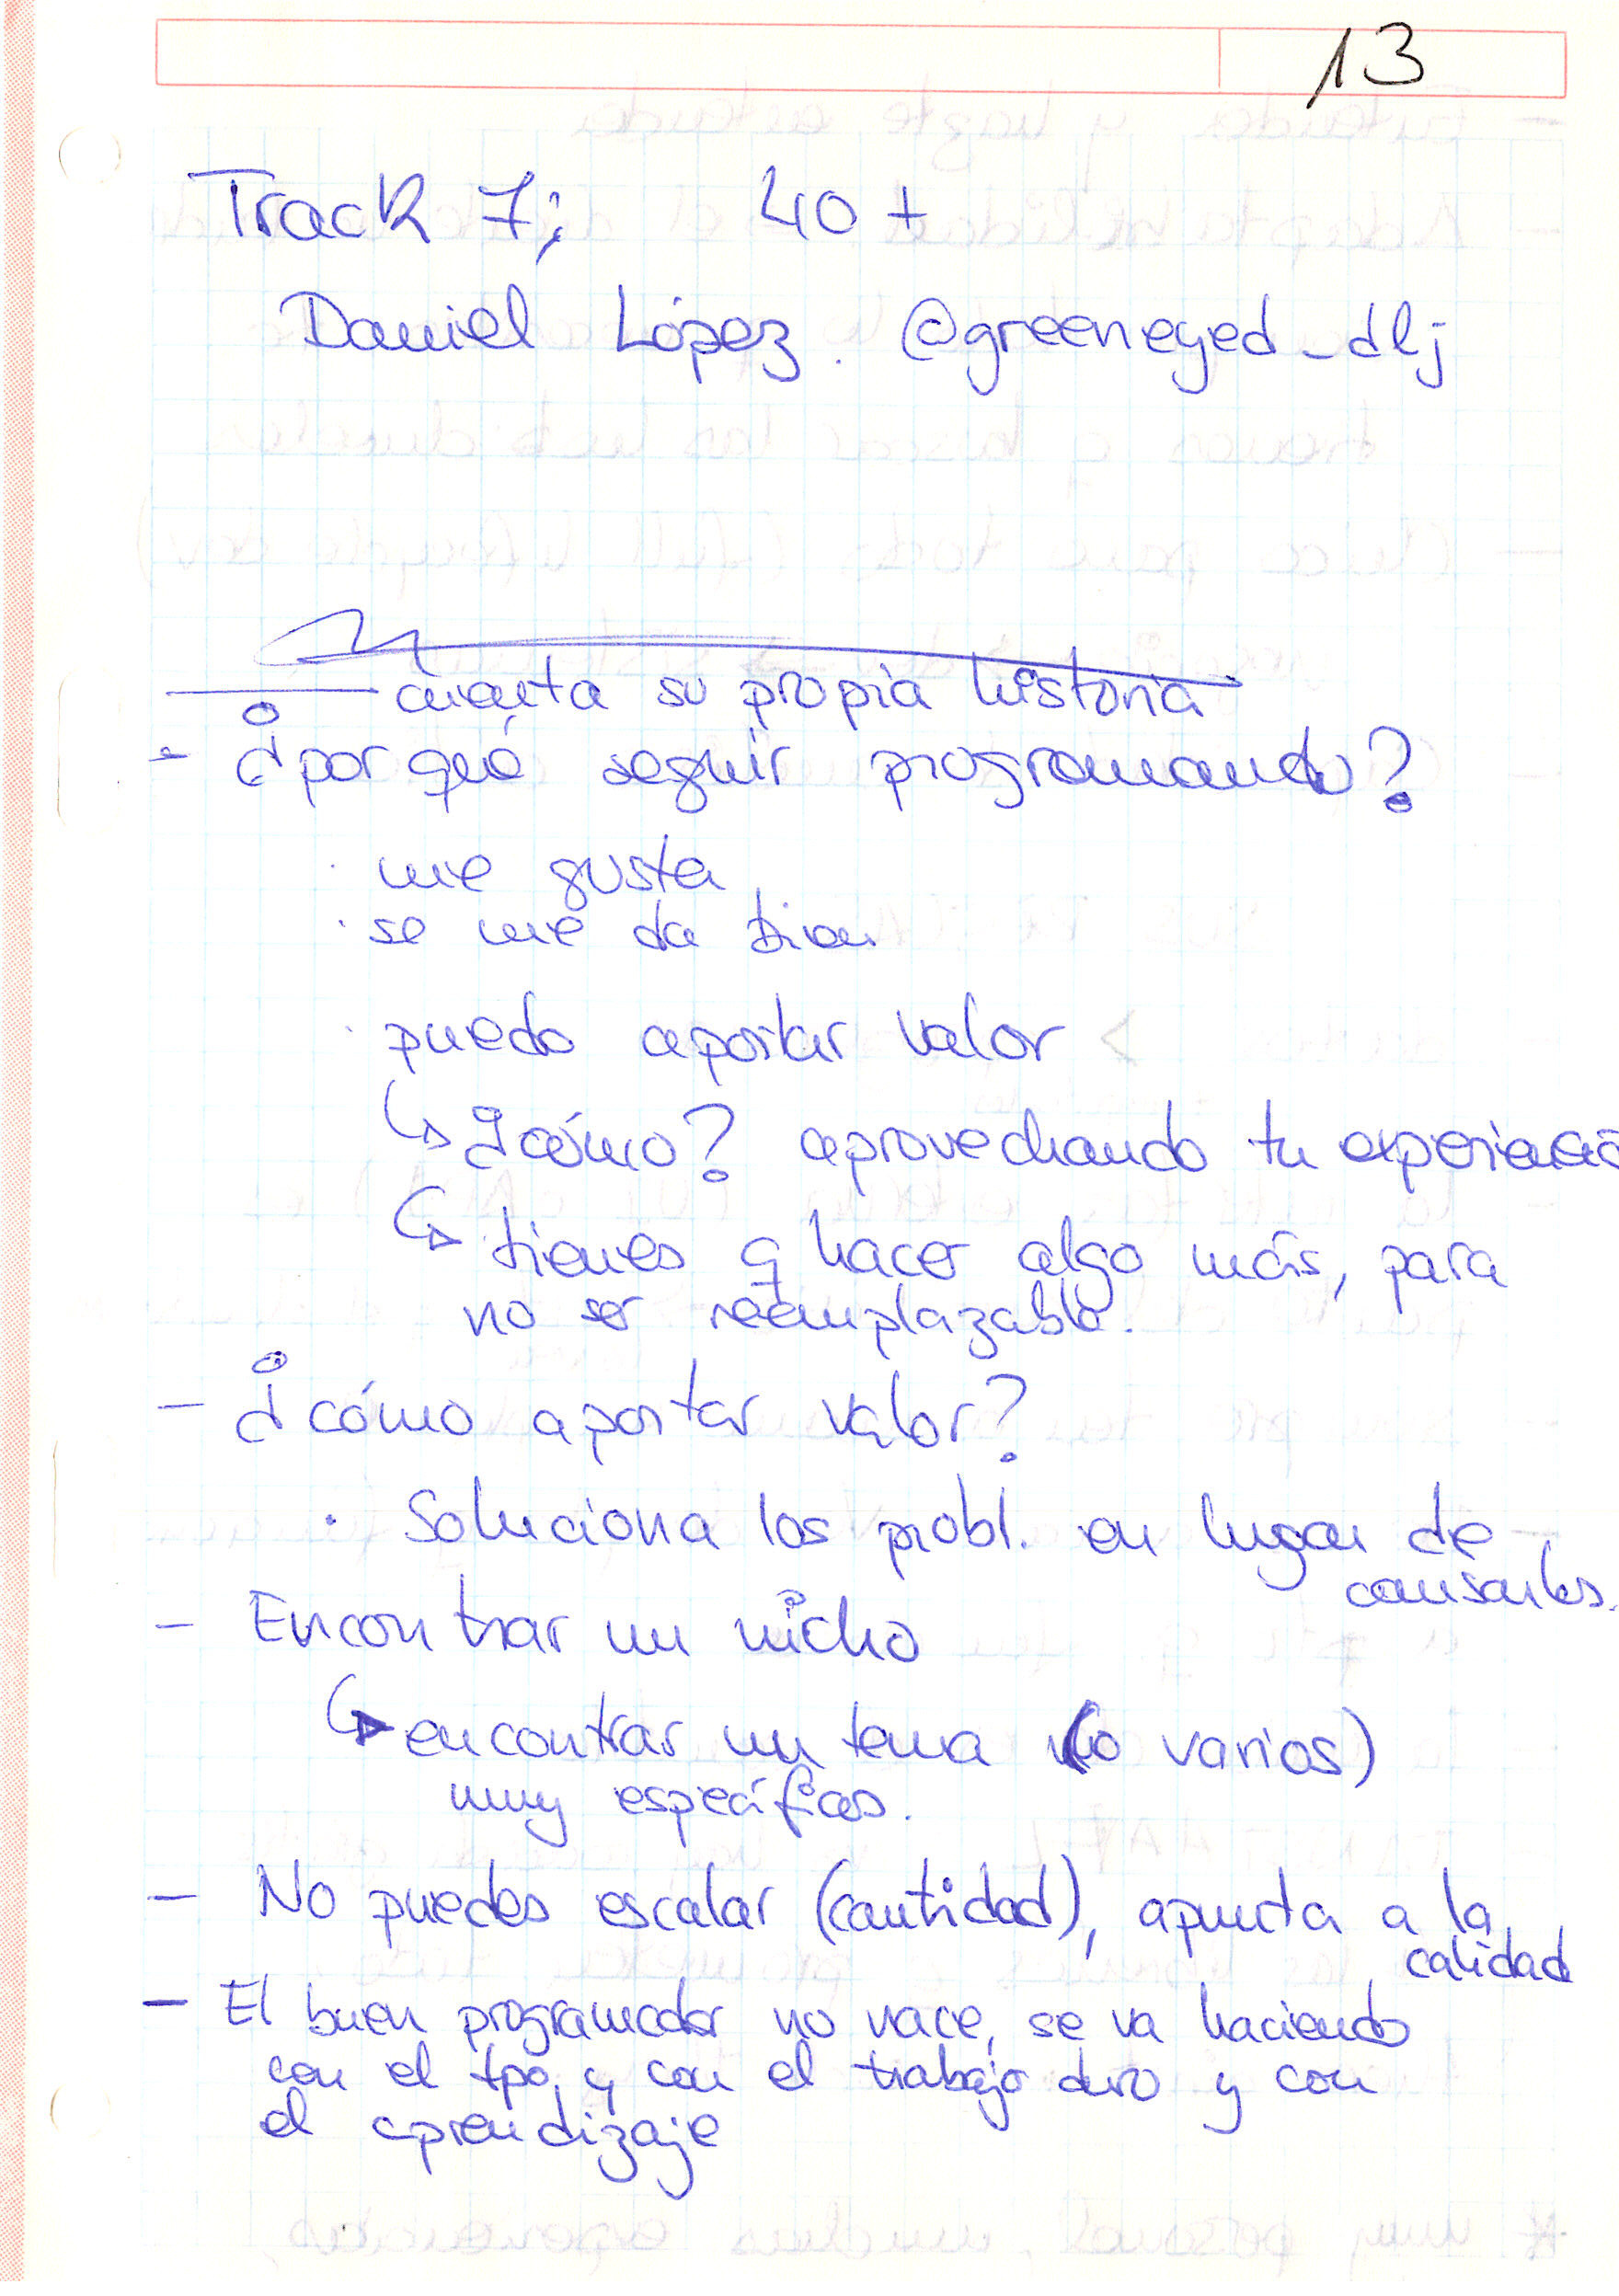 13
Track 7; 40 +
Daniel López. @greeneyed_dlj
cuenta su propia historia
- ¿por qué seguir programando?
· me gusta
· se me da bien
· puedo aportar valor
↳ ¿cómo? aprovechando tu experiencia
↳ tienes q hacer algo más, para
no ser reemplazable.
- ¿cómo aportar valor?
· Soluciona los probl. en lugar de
causarlos.
- Encontrar un nicho
↳ encontrar un tema (o varios)
muy específicos.
- No puedes escalar (cantidad), apunta a la
calidad
- El buen programador no nace, se va haciendo
con el tpo, y con el trabajo duro y con
el aprendizaje